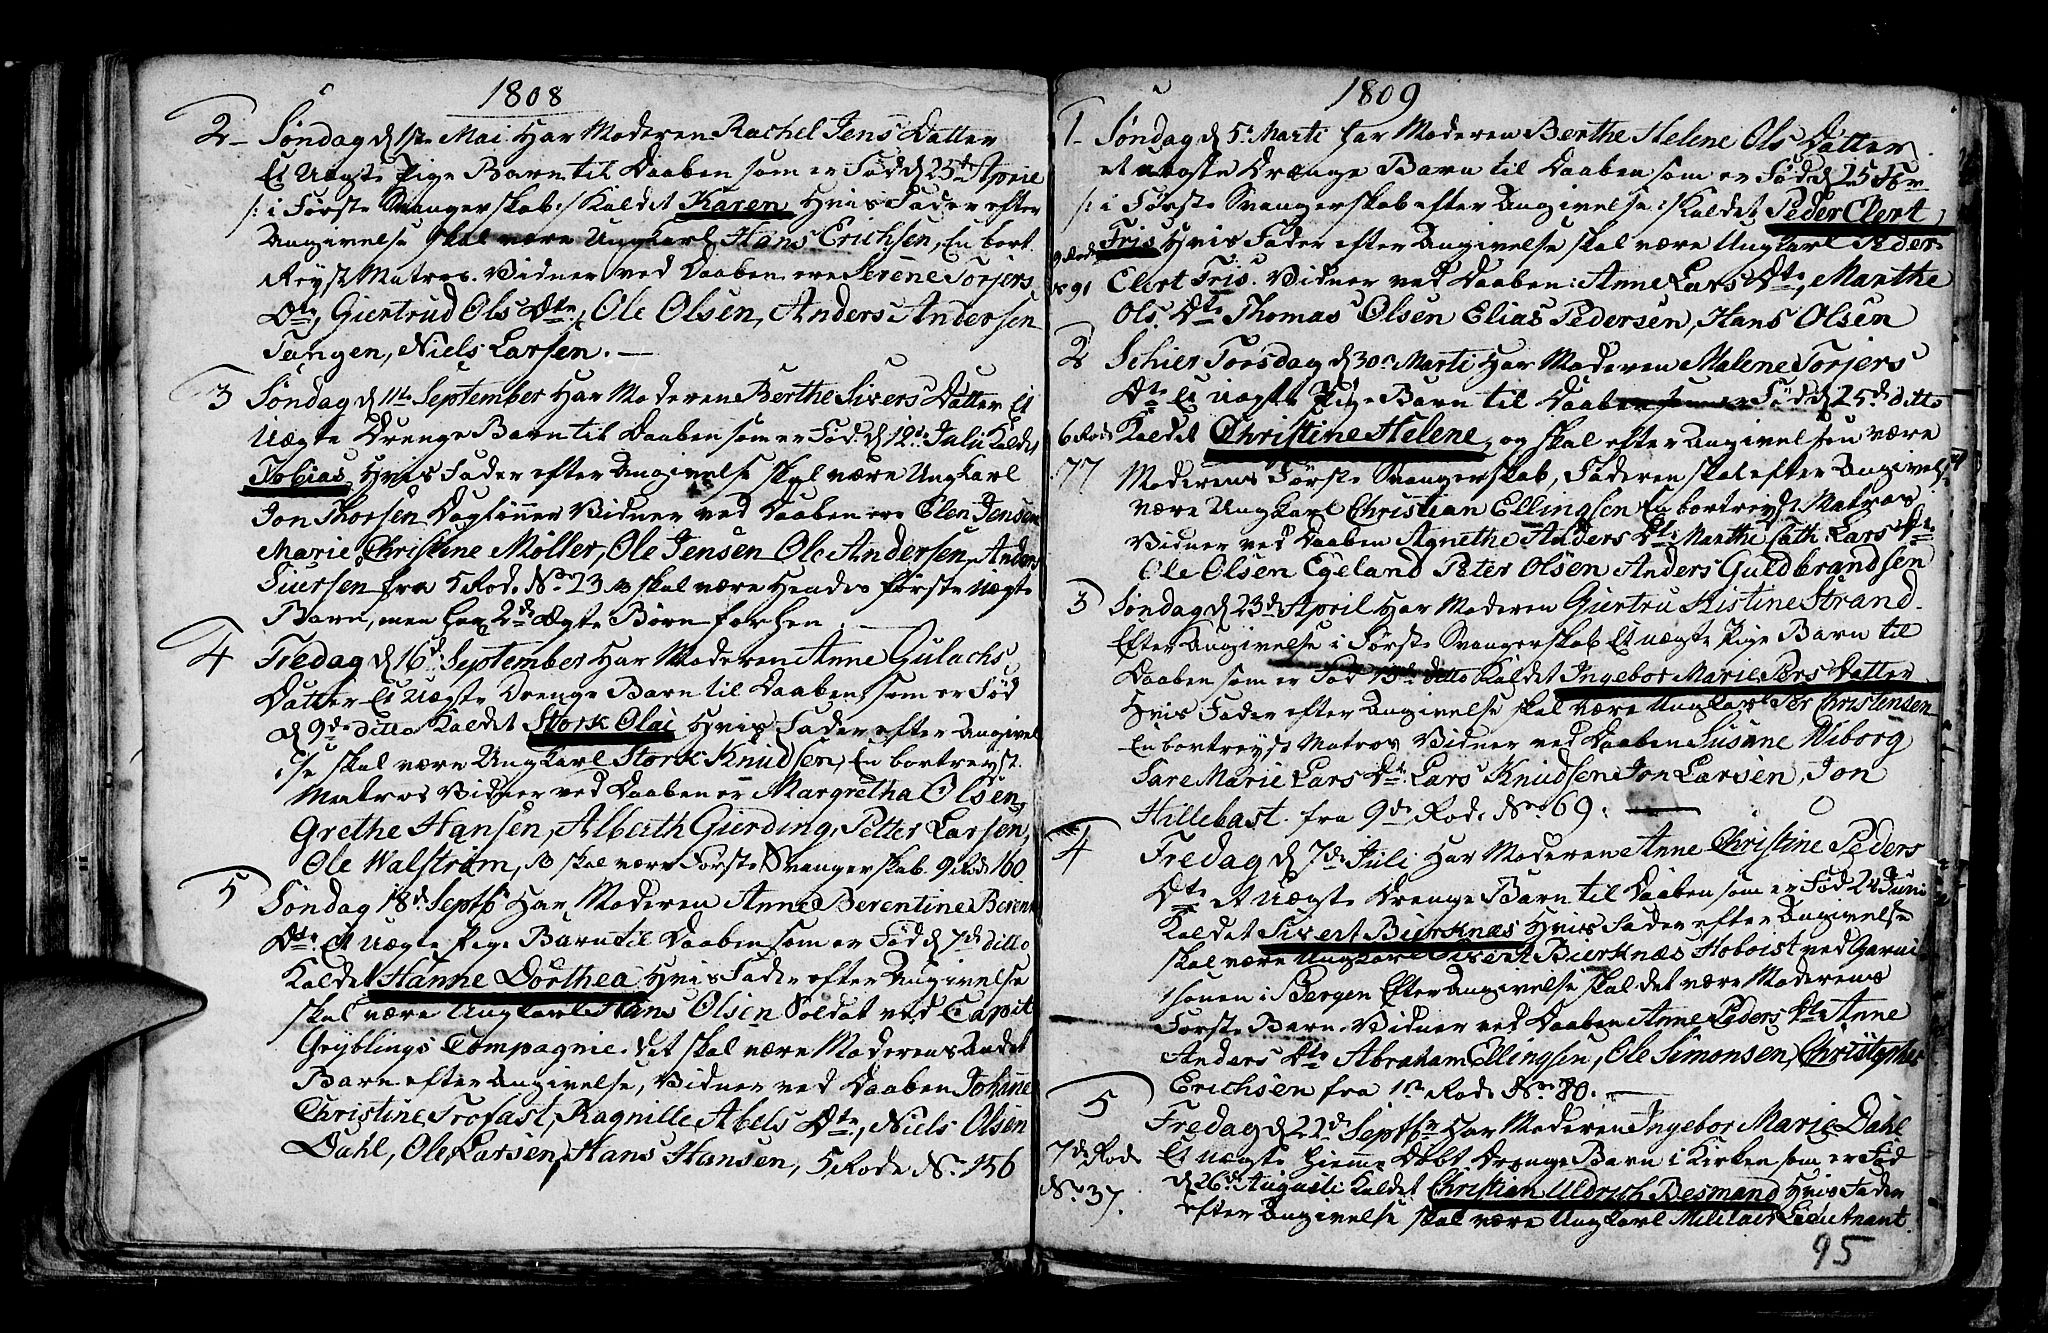 1808
2 Søndag d 1ste Mai Har Moderen Rachel Jens Datter
Et Uægte Pige Barn til Daaben som er Fød d 25de April
/: i Første Svangerskab :/ Kaldet Karen Hvis Fader efter
Angivelse skal være Ungkarl Hans Erichsen, En bort
Reyst Matros. Vidner ved Daaben ere Serene Torjers
Dtr, Giertrud Ols Dtr, Ole Olsen, Anders Andersen
Tangen, Niels Larsen. —
3 Søndag d September Har Moderen Berthe Sivers Datter Et
Uægte Drenge Barn til Daaben som er Fød d 12t Juli Kaldet
Tobias Hvis Fader efter Angivelse skal være Ungkarl
Jon Thorsen Daglønner Vidner ved Daaben ere Elen Jensen
Marie Christine Møller, Ole Jensen Ole Andersen, Anders
Siversen fra 5 Rode No 23 skal være Hendes første Uægte
Barn, men har 2de Ægte Børn forhen. —
4 Fredag d 16d September Har Moderen Anne Gulachs
Datter Et Uægte Drenge Barn til Daaben som er Fød
d 9de ditto Kaldet Stork Olai Hvis Fader efter Angivel
se skal være Ungkarl Stork Knudsen, En bortreyst
Matros Vidner ved Daaben er Margretha Olsen,
Grethe Hansen, Alberth Gierding, Petter Larsen,
Ole Walstrøm, skal være Første Svangerskab. 9 Rode 160
5 Søndag 18d Septb Har Moderen Anne Berentine Berent
Dtr. Et Uægte Pige Barn til Daaben som er Fød d 7de ditto
Kaldet Hanne Dorthea Hvis Fader efter Angivelse
skal være Ungkarl Hans Olsen Soldat ved Capit
Gryblings Compagnie. det skal være Moderens Andet
Barn efter Angivelse, Vidner ved Daaben Johanne
Christine Trofast, Ragnille Abels Dtr, Niels Olsen
Dahl, Ole Larsen, Hans Hansen, 5 Rode No 156
1809
1 Søndag d 5 Marti har Moderen Berthe Helene Ols Datter
et uægte Drænge Barn til Daaben som er Fød d 25 Fbr
/: i Første Svangerskab efter Angivelse :/ Kaldet Peder Clert
9 Rode Fris Hvis Fader efter Angivelse skal være Ungkarl Peder
No 91 Clert Fris. Vidner ved Daaben: Anne Lars Dtr, Marthe
Ols Dtr Thomas Olsen Elias Pedersen, Hans Olsen
2 Schier Torsdag d 30 Marti Har Moderen Malene Torjers
Dtr Et Uægte Pige Barn til Daaben som er Fød d 25d ditto
6 Rode Kaldet Christine Helene, og skal efter Angivelsen være
77 Moderens Første Svangerskab, Faderen skal efter Angivelse
være Ungkarl Christian Ellingsen En bortreyst Matros
Vidner ved Daaben Agnethe Anders Dtr Marthe Cath: Lars Dtr
Ole Olsen Egeland Peter Olsen Anders Guldbrandsen
3 Søndag d 23d April Har Moderen Giertru Kistine Strand
Efter Angivelse i Første Svangerskab Et uægte Pige Barn til
Daaben som er Fød 13de ditto Kaldet Ingebor Marie Pers Datter
Hvis Fader efter Angivelse skal være Ungkarl Per Christensen
En bortreyst Matros Vidner ved Daaben Susane Wiborg
Sare Marie Lars Dt. Lars Knudsen Jon Larsen, Jon
Hillebast. fra 9de Rode No 69: —
4 Fredag d 7de Juli Har Moderen Anne Christine Peders
Dtr et Uægte Drenge Barn til Daaben som er Fød 28 Juni
Kaldet Sivert Bierknæs Hvis Fader efter Angivelse
skal være Ungkarl Sivert Bierknæs Hoboist ved Garni
sonen i Bergen Efter Angivelse skal det være Moderens
Første Barn. Vidner ved Daaben Anne Peders Dtr Anne
Anders Dtr Abraham Ellingsen, Ole Simonsen, Christopher
Erichsen fra 1 Rode No 80. —
5 Fredag d 22de Septbr Har Moderen Ingebor Marie Dahl
7de Rode Et Uægte Hjemme Døbt Drenge Barn i Kirken som er Fød
No 37. d 26d Augusti Kaldet Christian Uldrich Besmand Hvis Fader
efter Angivelse skal være Ungkarl Militair Lieutnant
95